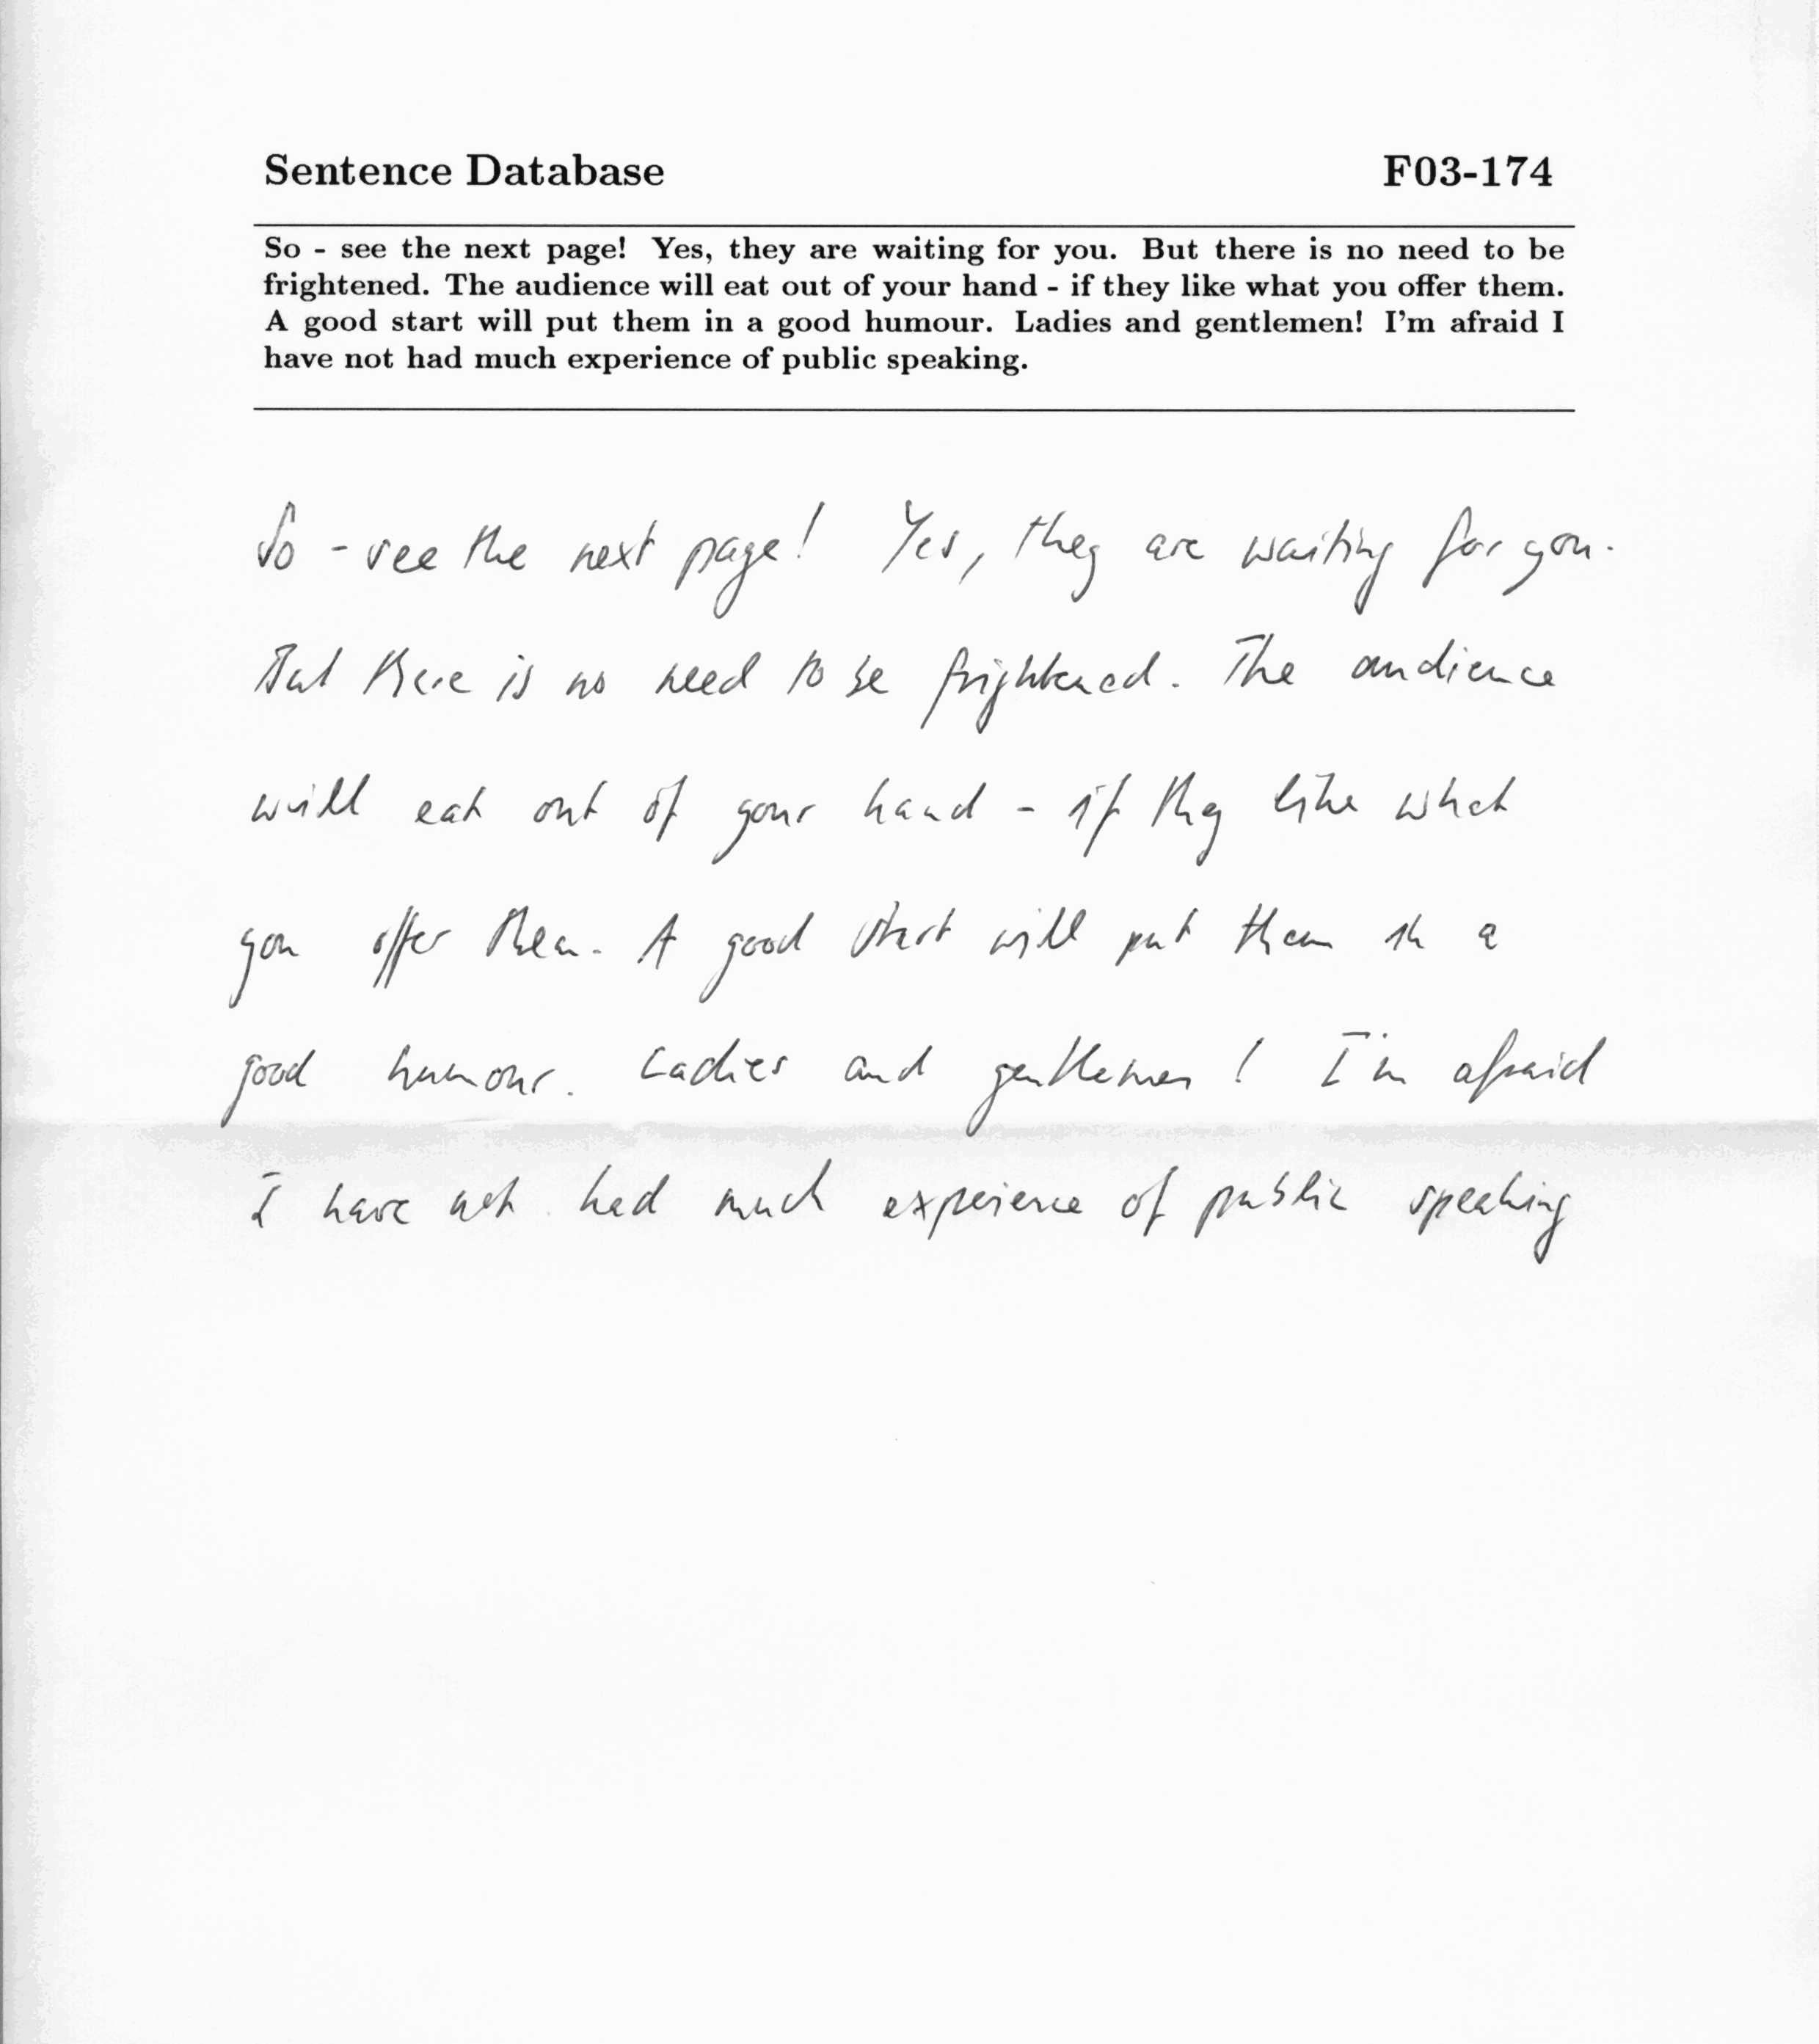 Sentence Database F03-174
So - see the next page! Yes, they are waiting for you. But there is no need to be
frightened. The audience will eat out of your hand - if they like what you offer them.
A good start will put them in a good humour. Ladies and gentlemen! I'm afraid I
have not had much experience of public speaking.
So - see the next page! Yes, they are waiting for you.
But there is no need to be frightened. The audience
will eat out of your hand - if they like what
you offer them. A good start will put them in a
good humour. Ladies and gentlemen! I'm afraid
I have not had much experience of public speaking